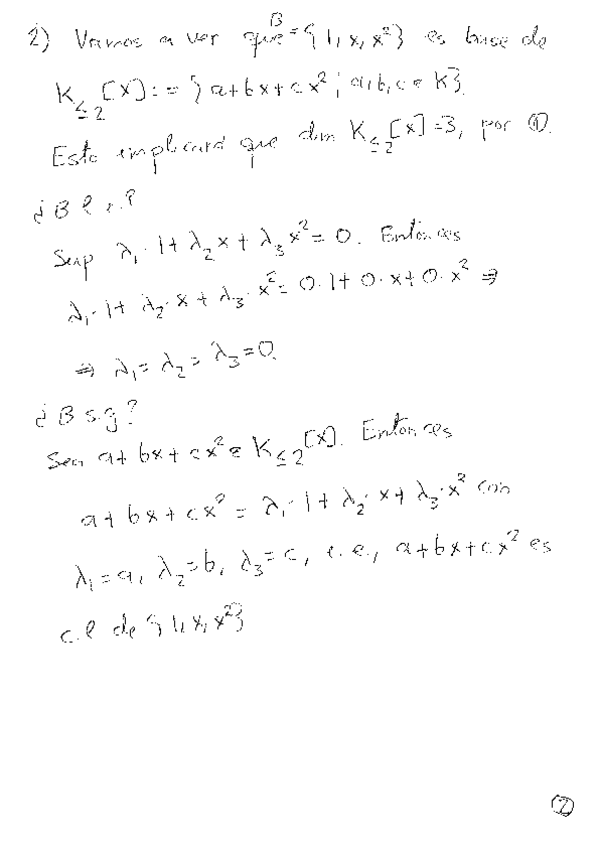 2) Vamos a ver que B = {1, x, x²} es base de
K≤2[X] := {a+bx+cx² ; a,b,c ∈ K}.
Esto implicará que dim K≤2[X] = 3, por ①.
¿B l.i.?
Sup λ₁·1+λ₂x+λ₃x² = 0. Entonces
λ₁·1+λ₂·x+λ₃·x² = 0·1+0·x+0·x² ⇒
⇒ λ₁=λ₂=λ₃=0.
¿B s.g?
Sea a+bx+cx² ∈ K≤2[X]. Entonces
a+bx+cx² = λ₁·1+λ₂·x+λ₃·x² con
λ₁=a, λ₂=b, λ₃=c, i.e., a+bx+cx² es
c.l de {1,x,x²}
②